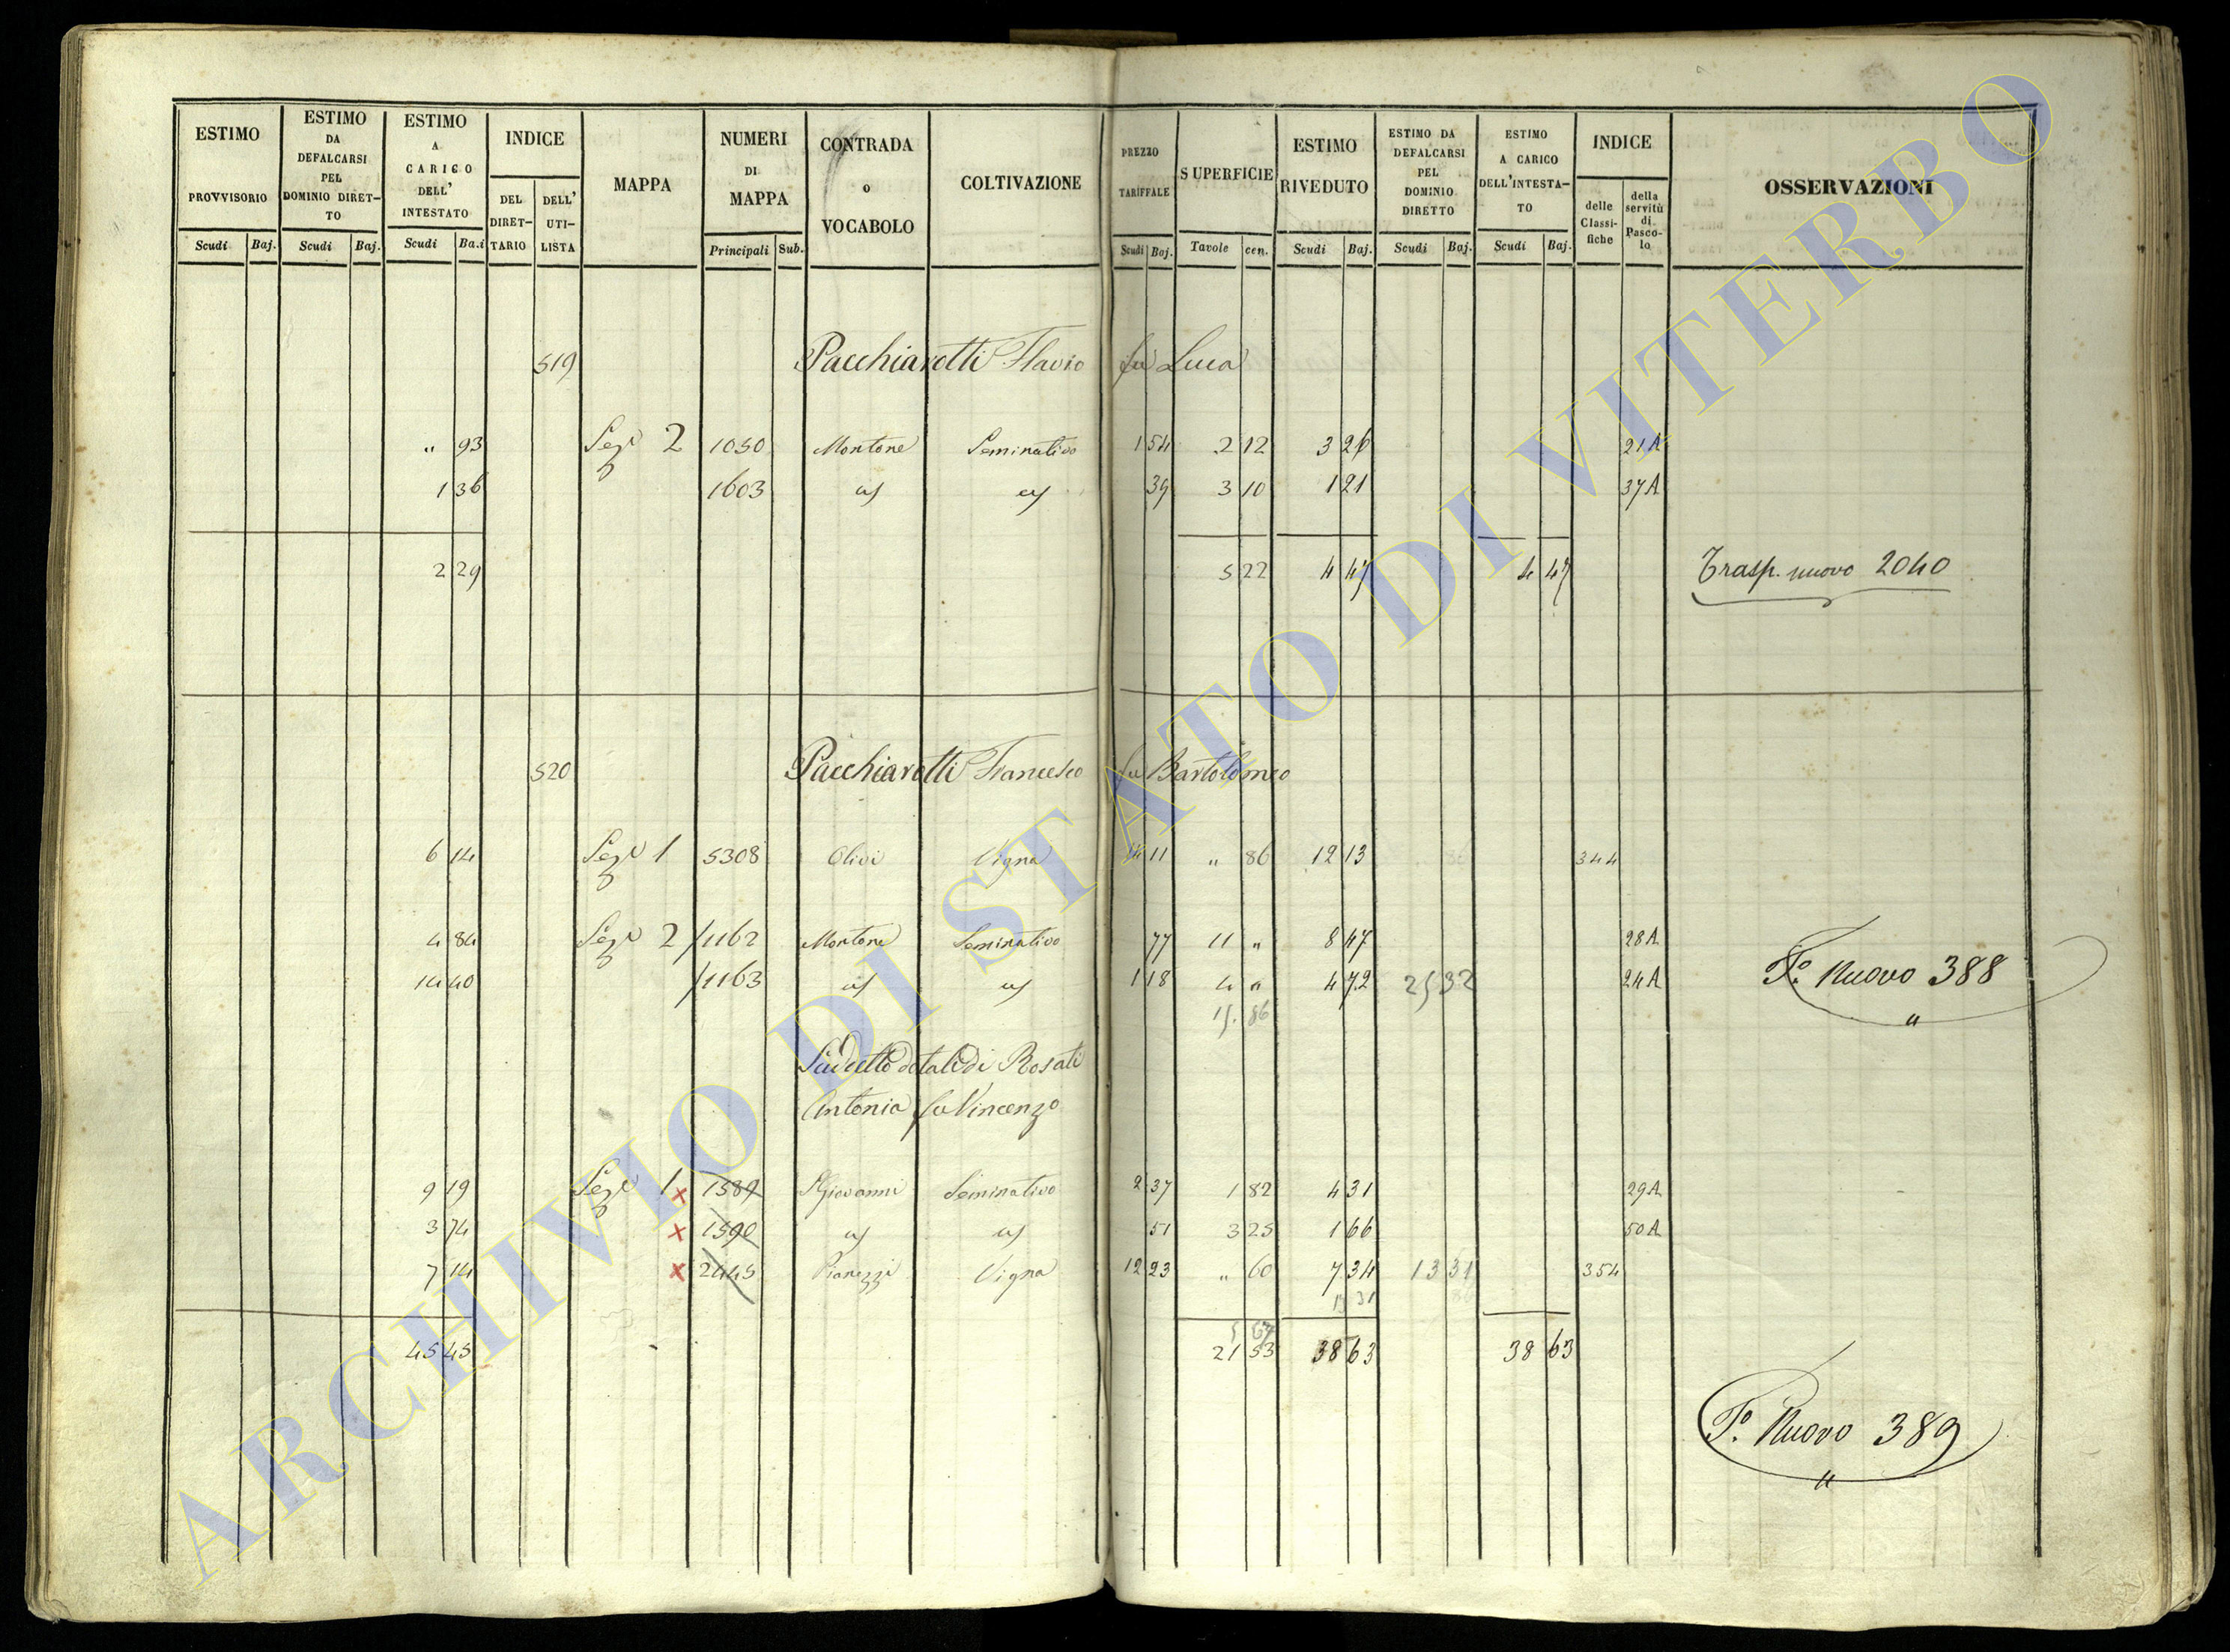 ESTIMO PROVVISORIO Scudi Baj.
ESTIMO DA DEFALCARSI PEL DOMINIO DIRETTO Scudi Baj.
ESTIMO A CARICO DELL' INTESTATO Scudi Ba.i
INDICE DEL DIRETTARIO DELL' UTILISTA
MAPPA
NUMERI DI MAPPA Principali Sub.
CONTRADA o VOCABOLO
COLTIVAZIONE
PREZZO TARIFFALE Scudi Baj.
SUPERFICIE Tavole cen.
ESTIMO RIVEDUTO Scudi Baj.
ESTIMO DA DEFALCARSI PEL DOMINIO DIRETTO Scudi Baj.
ESTIMO A CARICO DELL'INTESTATO Scudi Baj.
INDICE delle Classifiche della servitù di Pascolo
OSSERVAZIONI
519 Pacchiarotti Flavio fu Luca
" 93 Sez.e 2 1050 Montone Seminativo 1 54 2 12 3 26 21A
1 36 1603 as as 39 3 10 1 21 37A
2 29 5 22 4 47 4 47 Trasp. nuovo 2040
520 Pacchiarotti Francesco fu Bartolomeo
6 14 Sez.e 1 5308 Olivi Vigna 14 11 " 86 12 13 344
4 84 Sez.e 2 1162 Montone Seminativo 77 11 " 8 47 28A
14 40 1163 as as 1 18 4 " 4 72 25 32 24A F.o Nuovo 388
15. 86 "
Suddetto dotali di Rosati
Antonia fu Vincenzo
9 19 Sez.e 1 x 1589 S Giovanni Seminativo 2 37 1 82 4 31 29A
3 74 x 1590 as as 51 3 25 1 66 50A
7 14 x 2445 Pianezzi Vigna 12 23 " 60 7 34 13 31 354
13 31
5 67
45 45 21 53 38 63 38 63
F.o Nuovo 389
"
ARCHIVIO DI STATO DI VITERBO